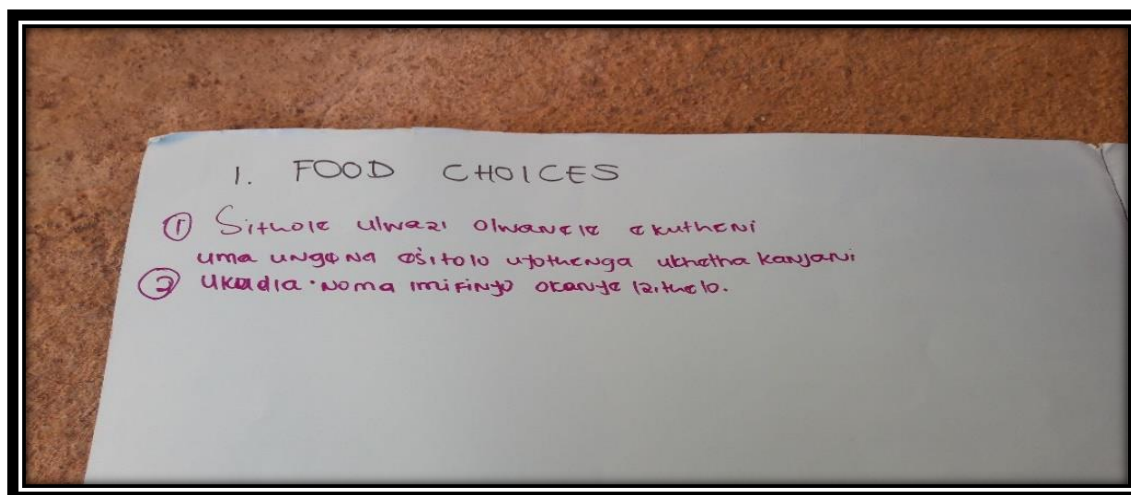 1. FOOD CHOICES
① Sithole ulwazi olwanele ekutheni
uma ungena esitolo uyothenga ukhetha kanjani
② Ukudla noma imifinyo okanye izithelo.